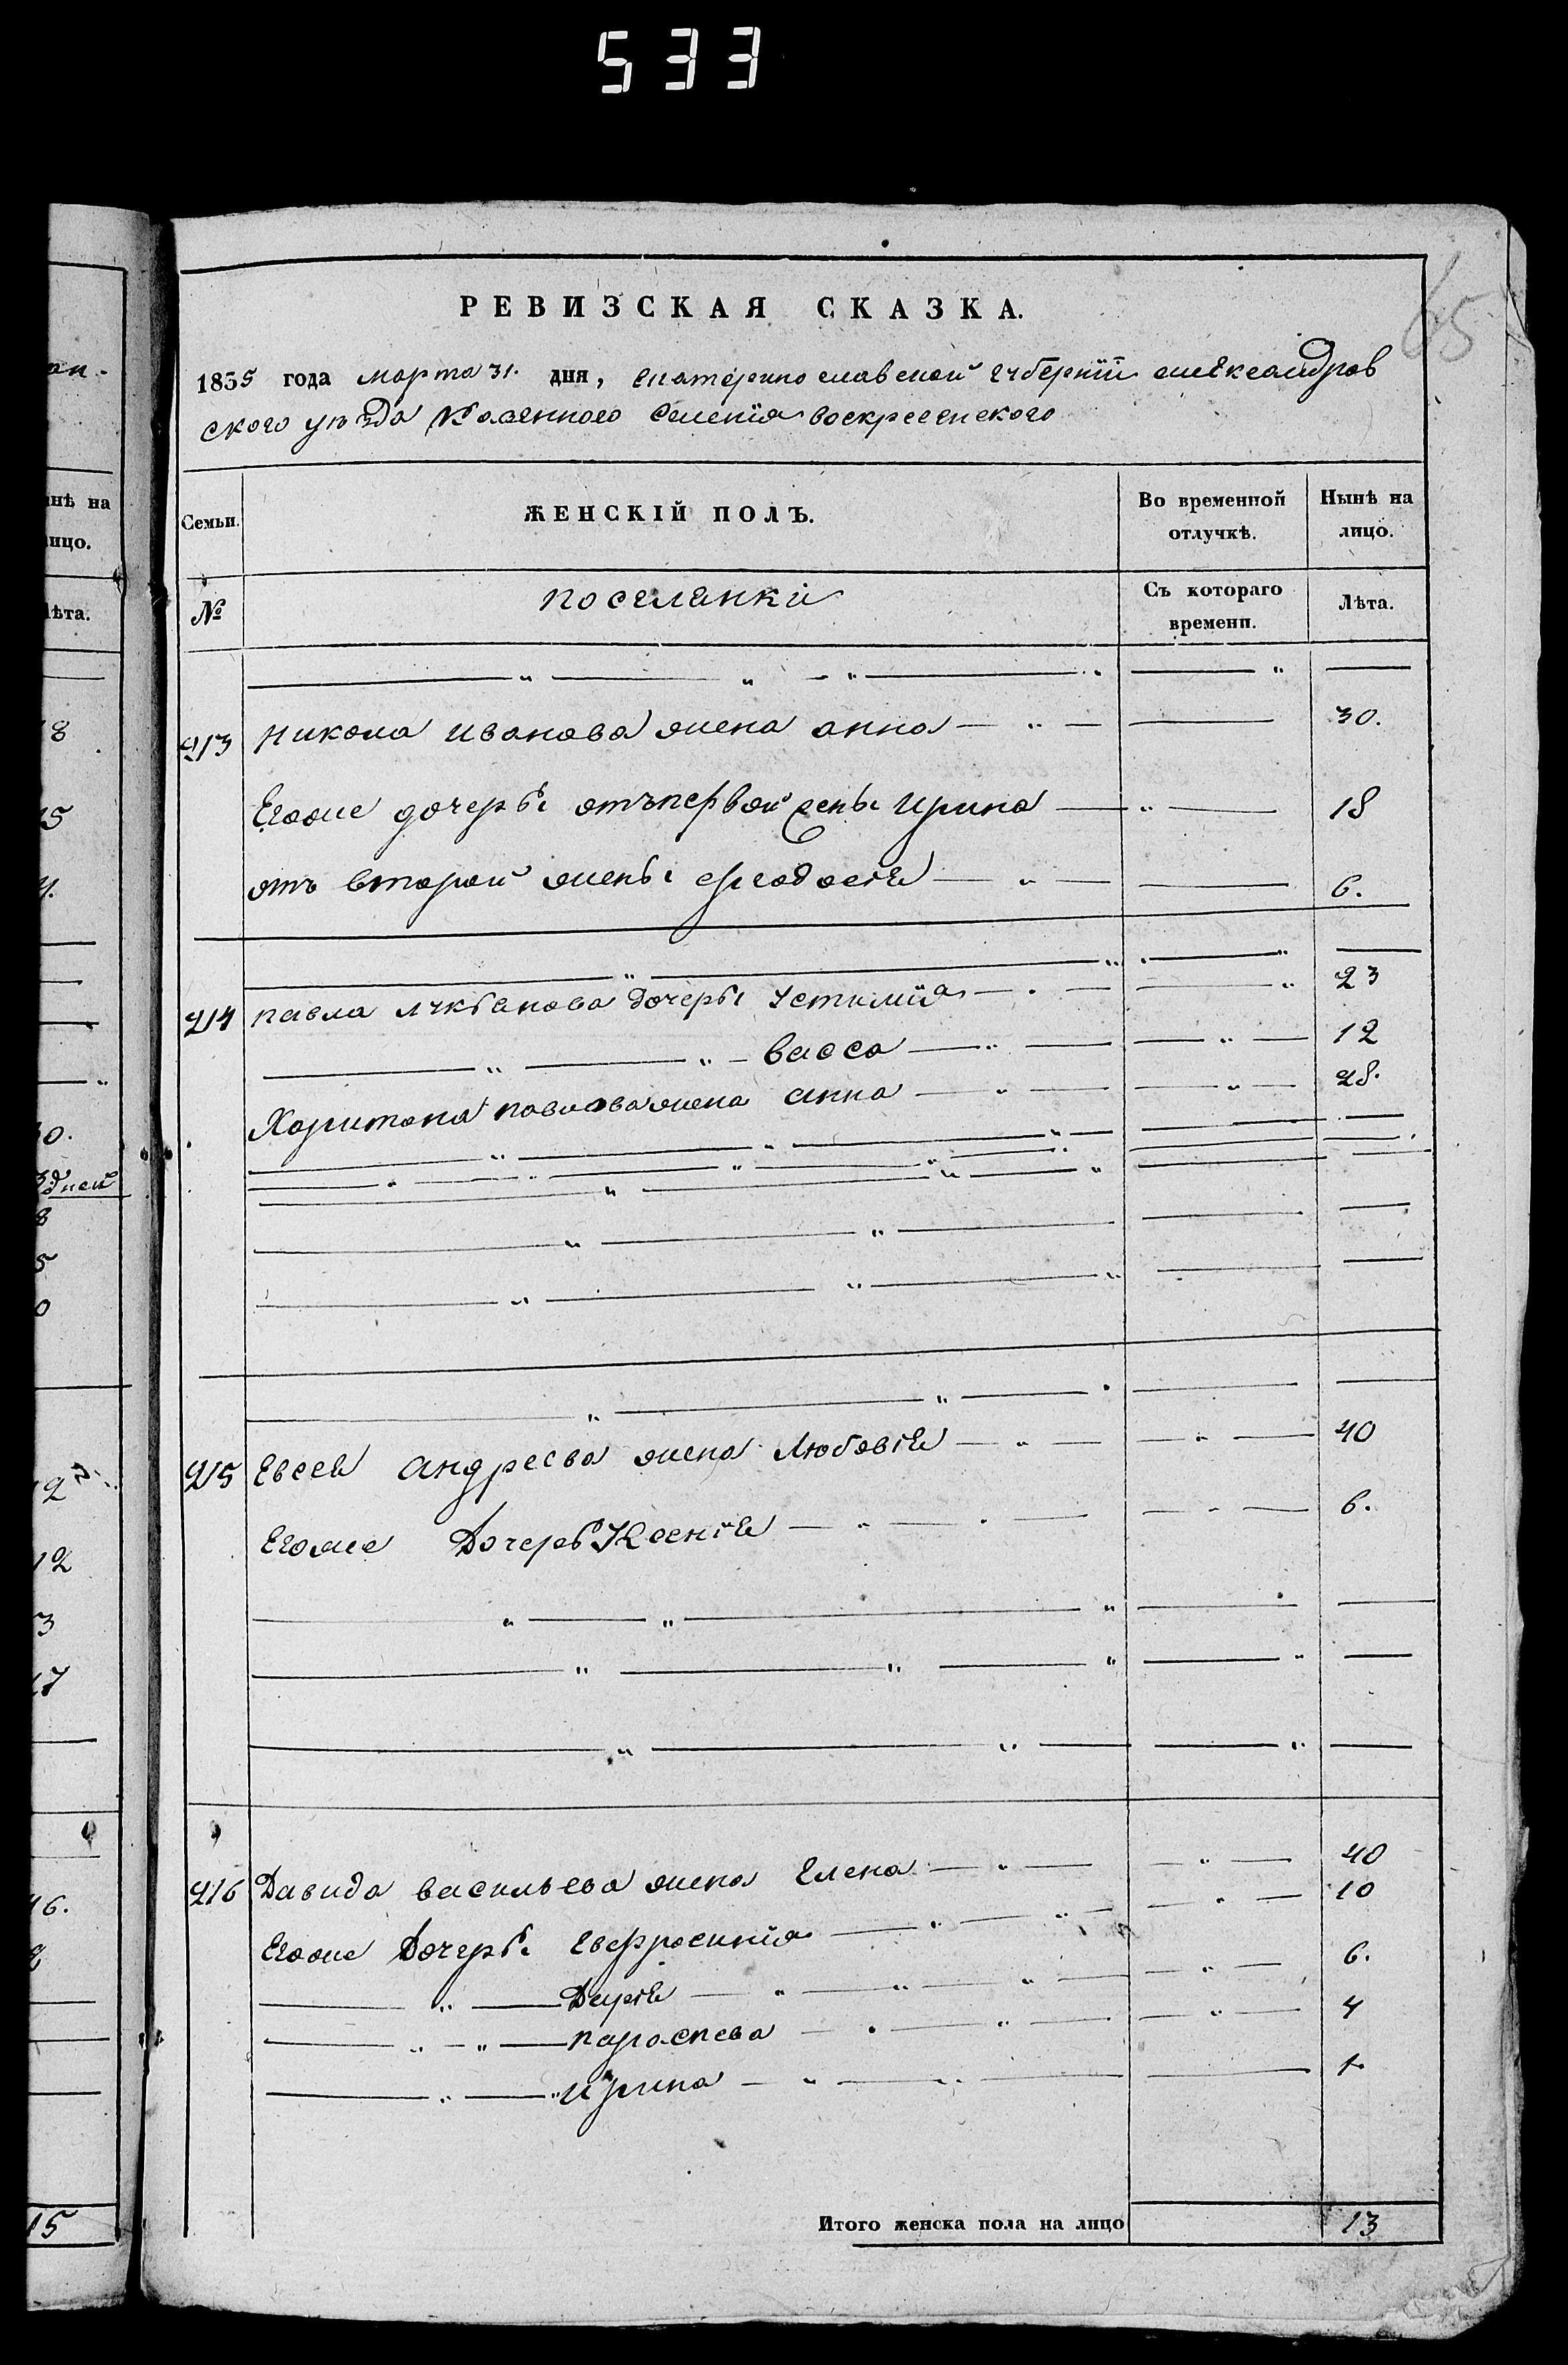 533
65
РЕВИЗСКАЯ СКАЗКА.
1835 года марта 31. дня, Екатеринославской губернїи александров
ского уѣзда Казенного Селенїя воскресенского
Семьи. ЖЕНСКІЙ ПОЛЪ. Во временной отлучкѣ. Нынѣ на лицо.
№ поселянки Съ котораго времени. Лѣта.
213 Никола иванова жена анна 30.
Егоже дочери отъпервой жены ирина 18
отъ второй жены феодосія 6.
214 павла лукьанова дочери устинїя 23
васса 12
Харитона павлова жена анна 28.
215 Евсея андреева жена Любовія 40
Егоже Дочерь Ксенія 6.
216 Давида васильева жена Елена 40
Егоже Дочери Евфросинїя 10
Дарія 6.
параскева 4
ирина 1
Итого женска пола на лицо 13
нѣ на
ицо.
ѣта.
8
15
30.
дней
8
5
0
12
3
17
46.
15